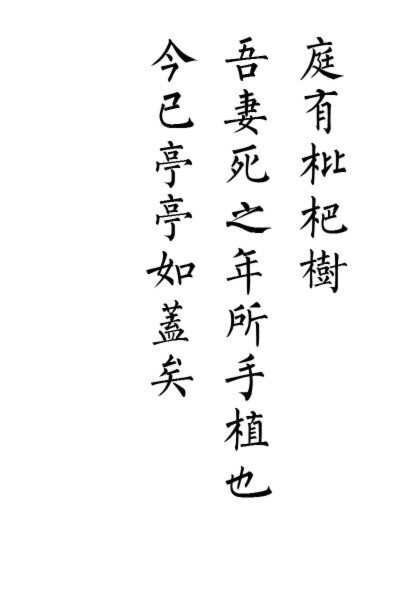 庭有枇杷樹
吾妻死之年所手植也
今已亭亭如蓋矣